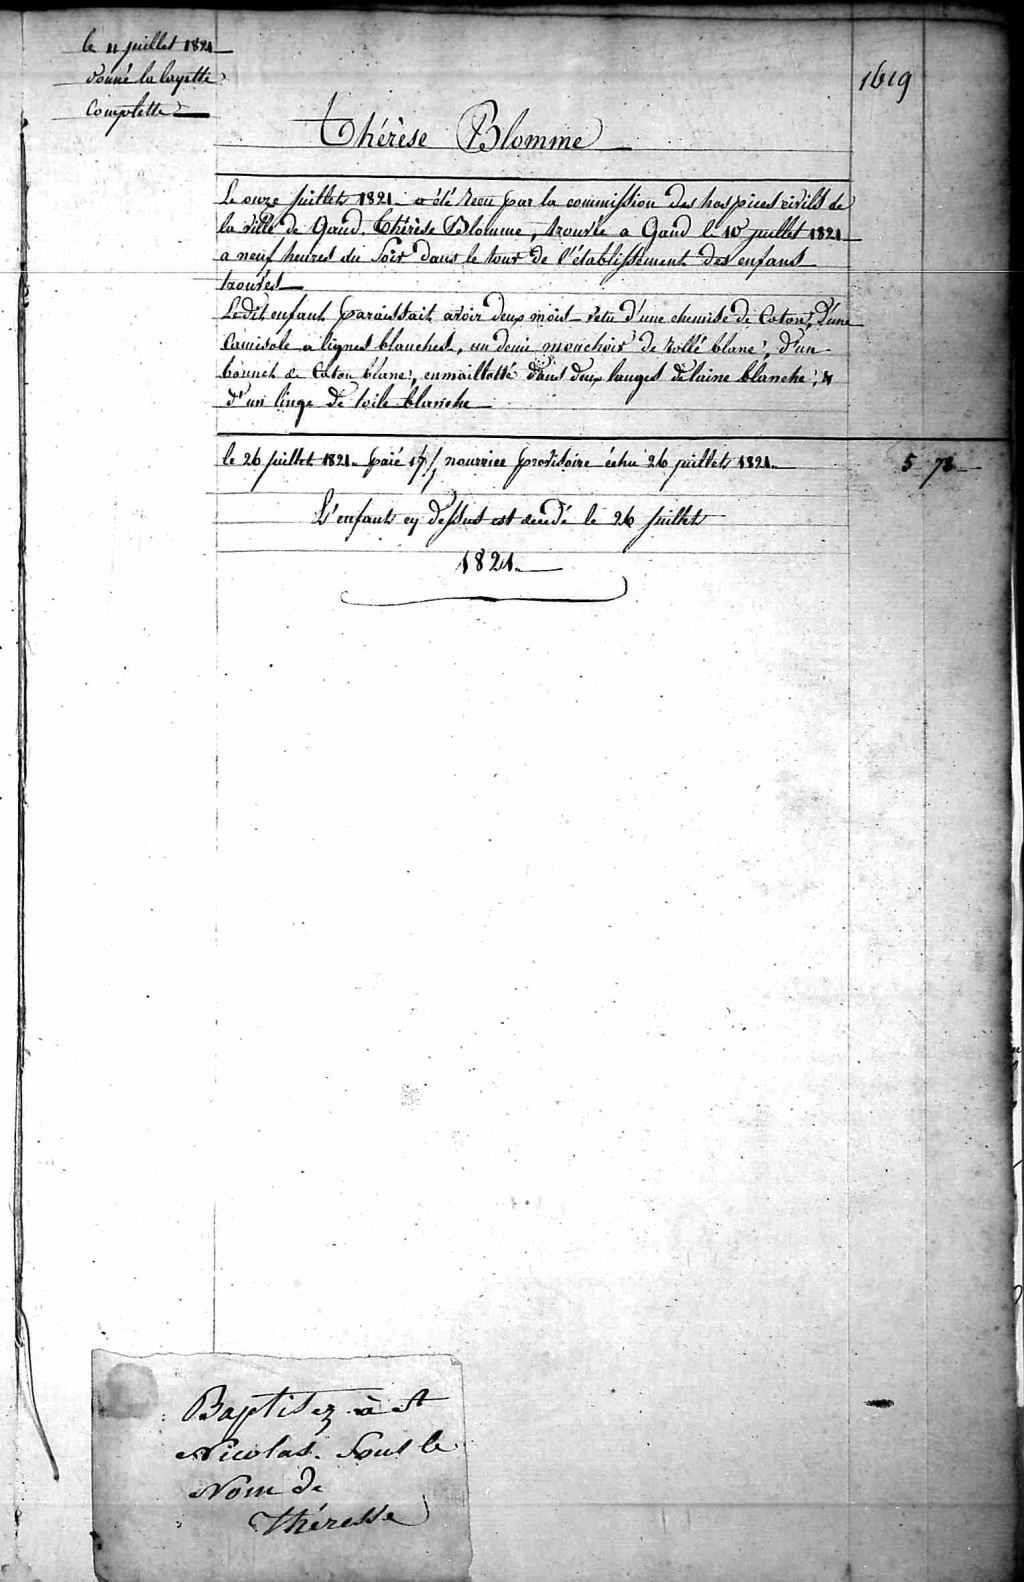 le 11 juillet 1821
donné la layette
Complette
1619
Thérèse Blomme
Le onze juillet 1821 a été recu par la commission des hospices civils de
la ville de Gand, Thérèse Blomme, trouvée a Gand le 10 juillet 1821
a neuf heures du soir dans le tour de l'établissement des enfans
trouvés
Ledit enfant paraissait avoir deux mois vetu d'une chemise de Coton, d'une
Camisole a lignes blanches, un demi mouchoir de blanc, d'un
bonnet de Coton blanc, enmaillotté dans deux langes de laine blanche, &
d'un linge de toile blanche
le 26 juillet 1821 paié 17 f nourrice provisoire échu 26 juillet 1821 5 78
L'enfant cy dessus est decedé le 26 juillet
1821.
Baptisez à St
Nicolas. Sous le
Nom de
Théresse